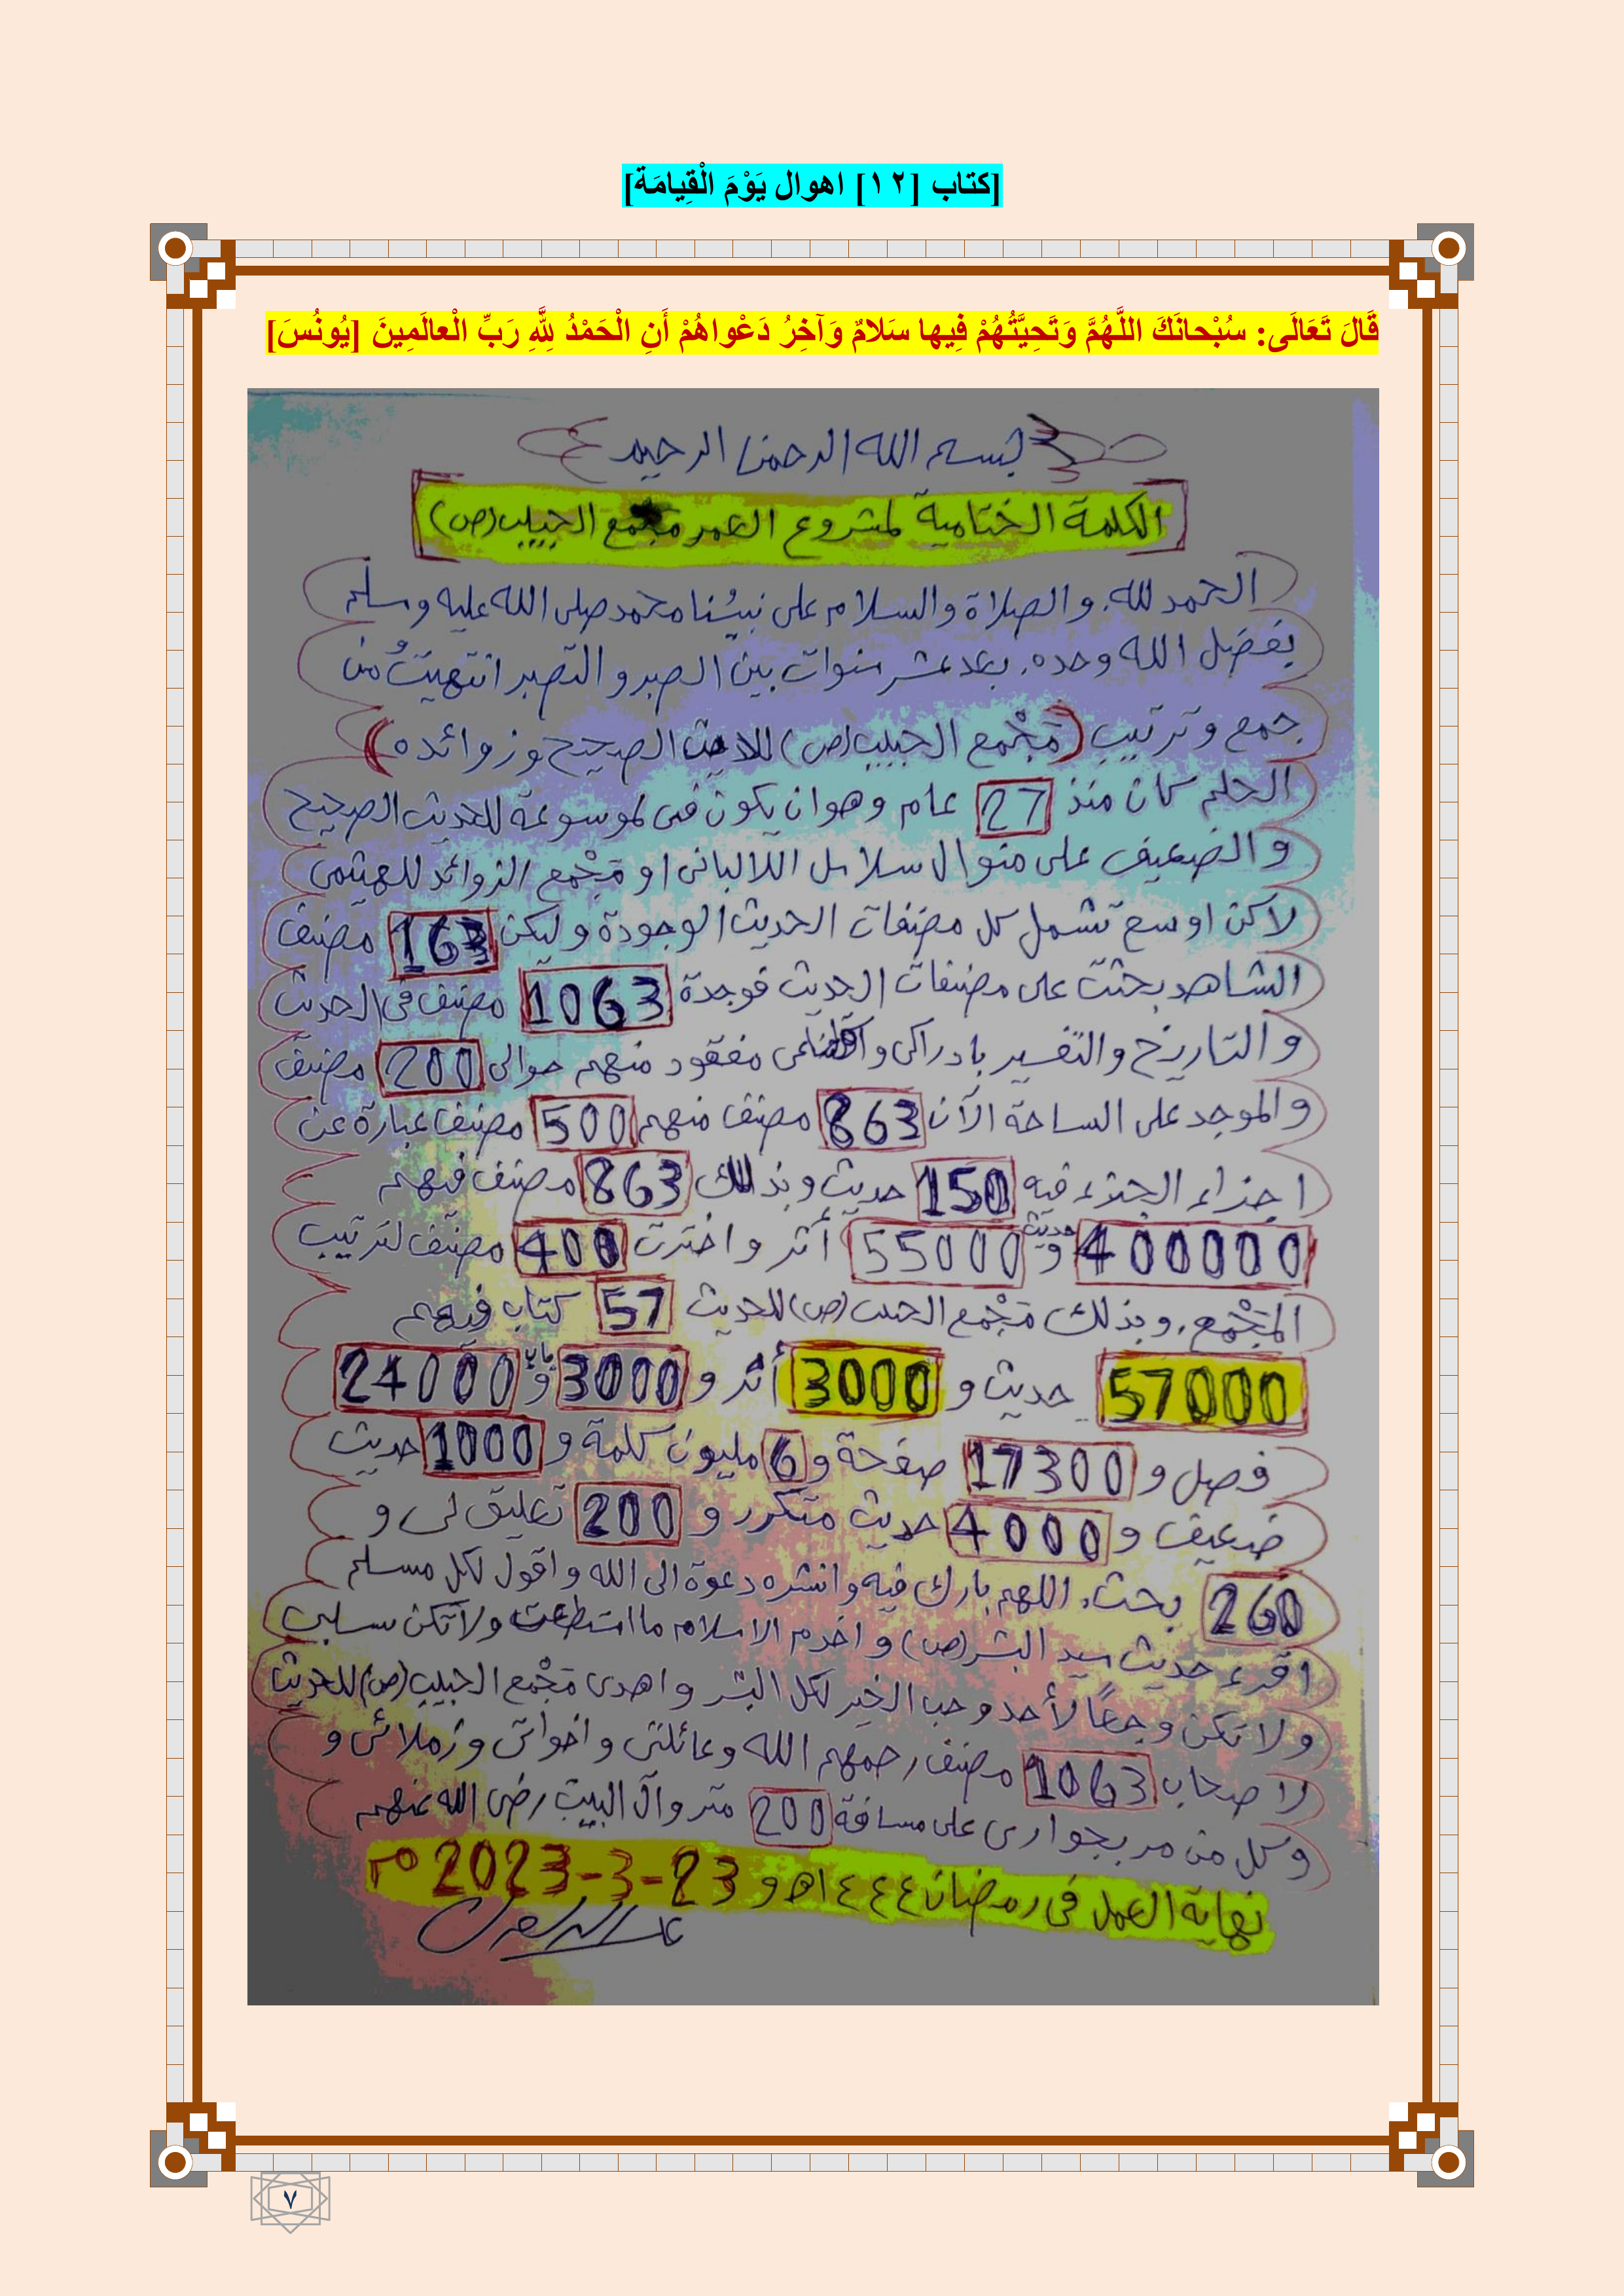 [كتاب [١٢] اهوال يَوْمَ الْقِيامَة]
قَالَ تَعَالَى: سُبْحانَكَ اللَّهُمَّ وَتَحِيَّتُهُمْ فِيها سَلامٌ وَآخِرُ دَعْواهُمْ أَنِ الْحَمْدُ لِلَّهِ رَبِّ الْعالَمِينَ [يُونُسَ]
بسم الله الرحمن الرحيم
[الكلمة الختامية لمشروع العمر مجمع الحبيب (ص)]
الحمد لله. والصلاة والسلام على نبيُنا محمد صلى الله عليه وسلم
بفضل الله وحده. بعد عشر سنوات بين الصبر والتصبر انتهيتُ من
جمع وترتيب (مَجْمع الحبيب (ص) للاحديث الصحيح وزوائده)
الحلم كان منذ 27 عام وهو ان يكون فى موسوعة للحديث الصحيح
والضعيف على منوال سلاسل اللالبانى او مَجْمع الزوائد للهيثمى
لاكن اوسع تشمل كل مصنفات الحديث الموجودة وليكن 163 مصنف
الشاهد بحثت على مصنفات الحديث فوجدة 1063 مصنف فى الحديث
والتاريخ والتفسير بادراكى و مفقود منهم حوالى 200 مصنف
والموجد على الساحة الآن 863 مصنف منهم 500 مصنف عبارة عن
اجزاء الجزء فيه 150 حديث وبذلك 863 مصنف فيهم
400000 حديث و 55000 أثر واخترت 400 مصنف لترتيب
المَجْمع. وبذلك مَجْمع الحبيب (ص) للحديث 57 كتاب فيهم
57000 حديث و 3000 أثر و 3000 باب و 24000
فصل و 17300 صفحة و 6 مليون كلمة و 1000 حديث
ضعيف و 4000 حديث متكرر و 200 تعليق لى و
260 بحث. اللهم بارك فيه وانشره دعوة الى الله واقول لكل مسلم
اقرء حديث سيد البشر (ص) واخدم الاسلام ما استطعت ولا تكن سلبى
ولا تكن وجعًا لأحد وحب الخير لكل البشر واهدى مَجْمع الحبيب (ص) للحديث
لاصحاب 1063 مصنف رحمهم الله وعائلتى واخواتى وزملائى و
وكل من مر بجوارى على مسافة 200 متر وآل البيت رضى الله عنهم
نهاية العمل فى رمضان ١٤٤٤ه و 23-3-2023 م
٧